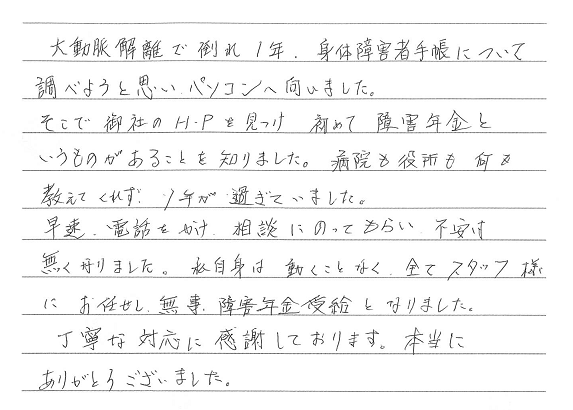 大動脈解離で倒れ1年、身体障害者手帳について
調べようと思い パソコンへ向いました。
そこで 御社の H・P を見つけ 初めて 障害年金と
いうものがあることを知りました。病院も役所も 何も
教えてくれず、1年が 過ぎていました。
早速、電話をかけ、相談にのってもらい 不安は
無くなりました。私自身は 動くことなく、全て スタッフ様
に お任せし、無事、障害年金受給 と なりました。
丁寧な対応に 感謝しております。本当に
ありがとうございました。